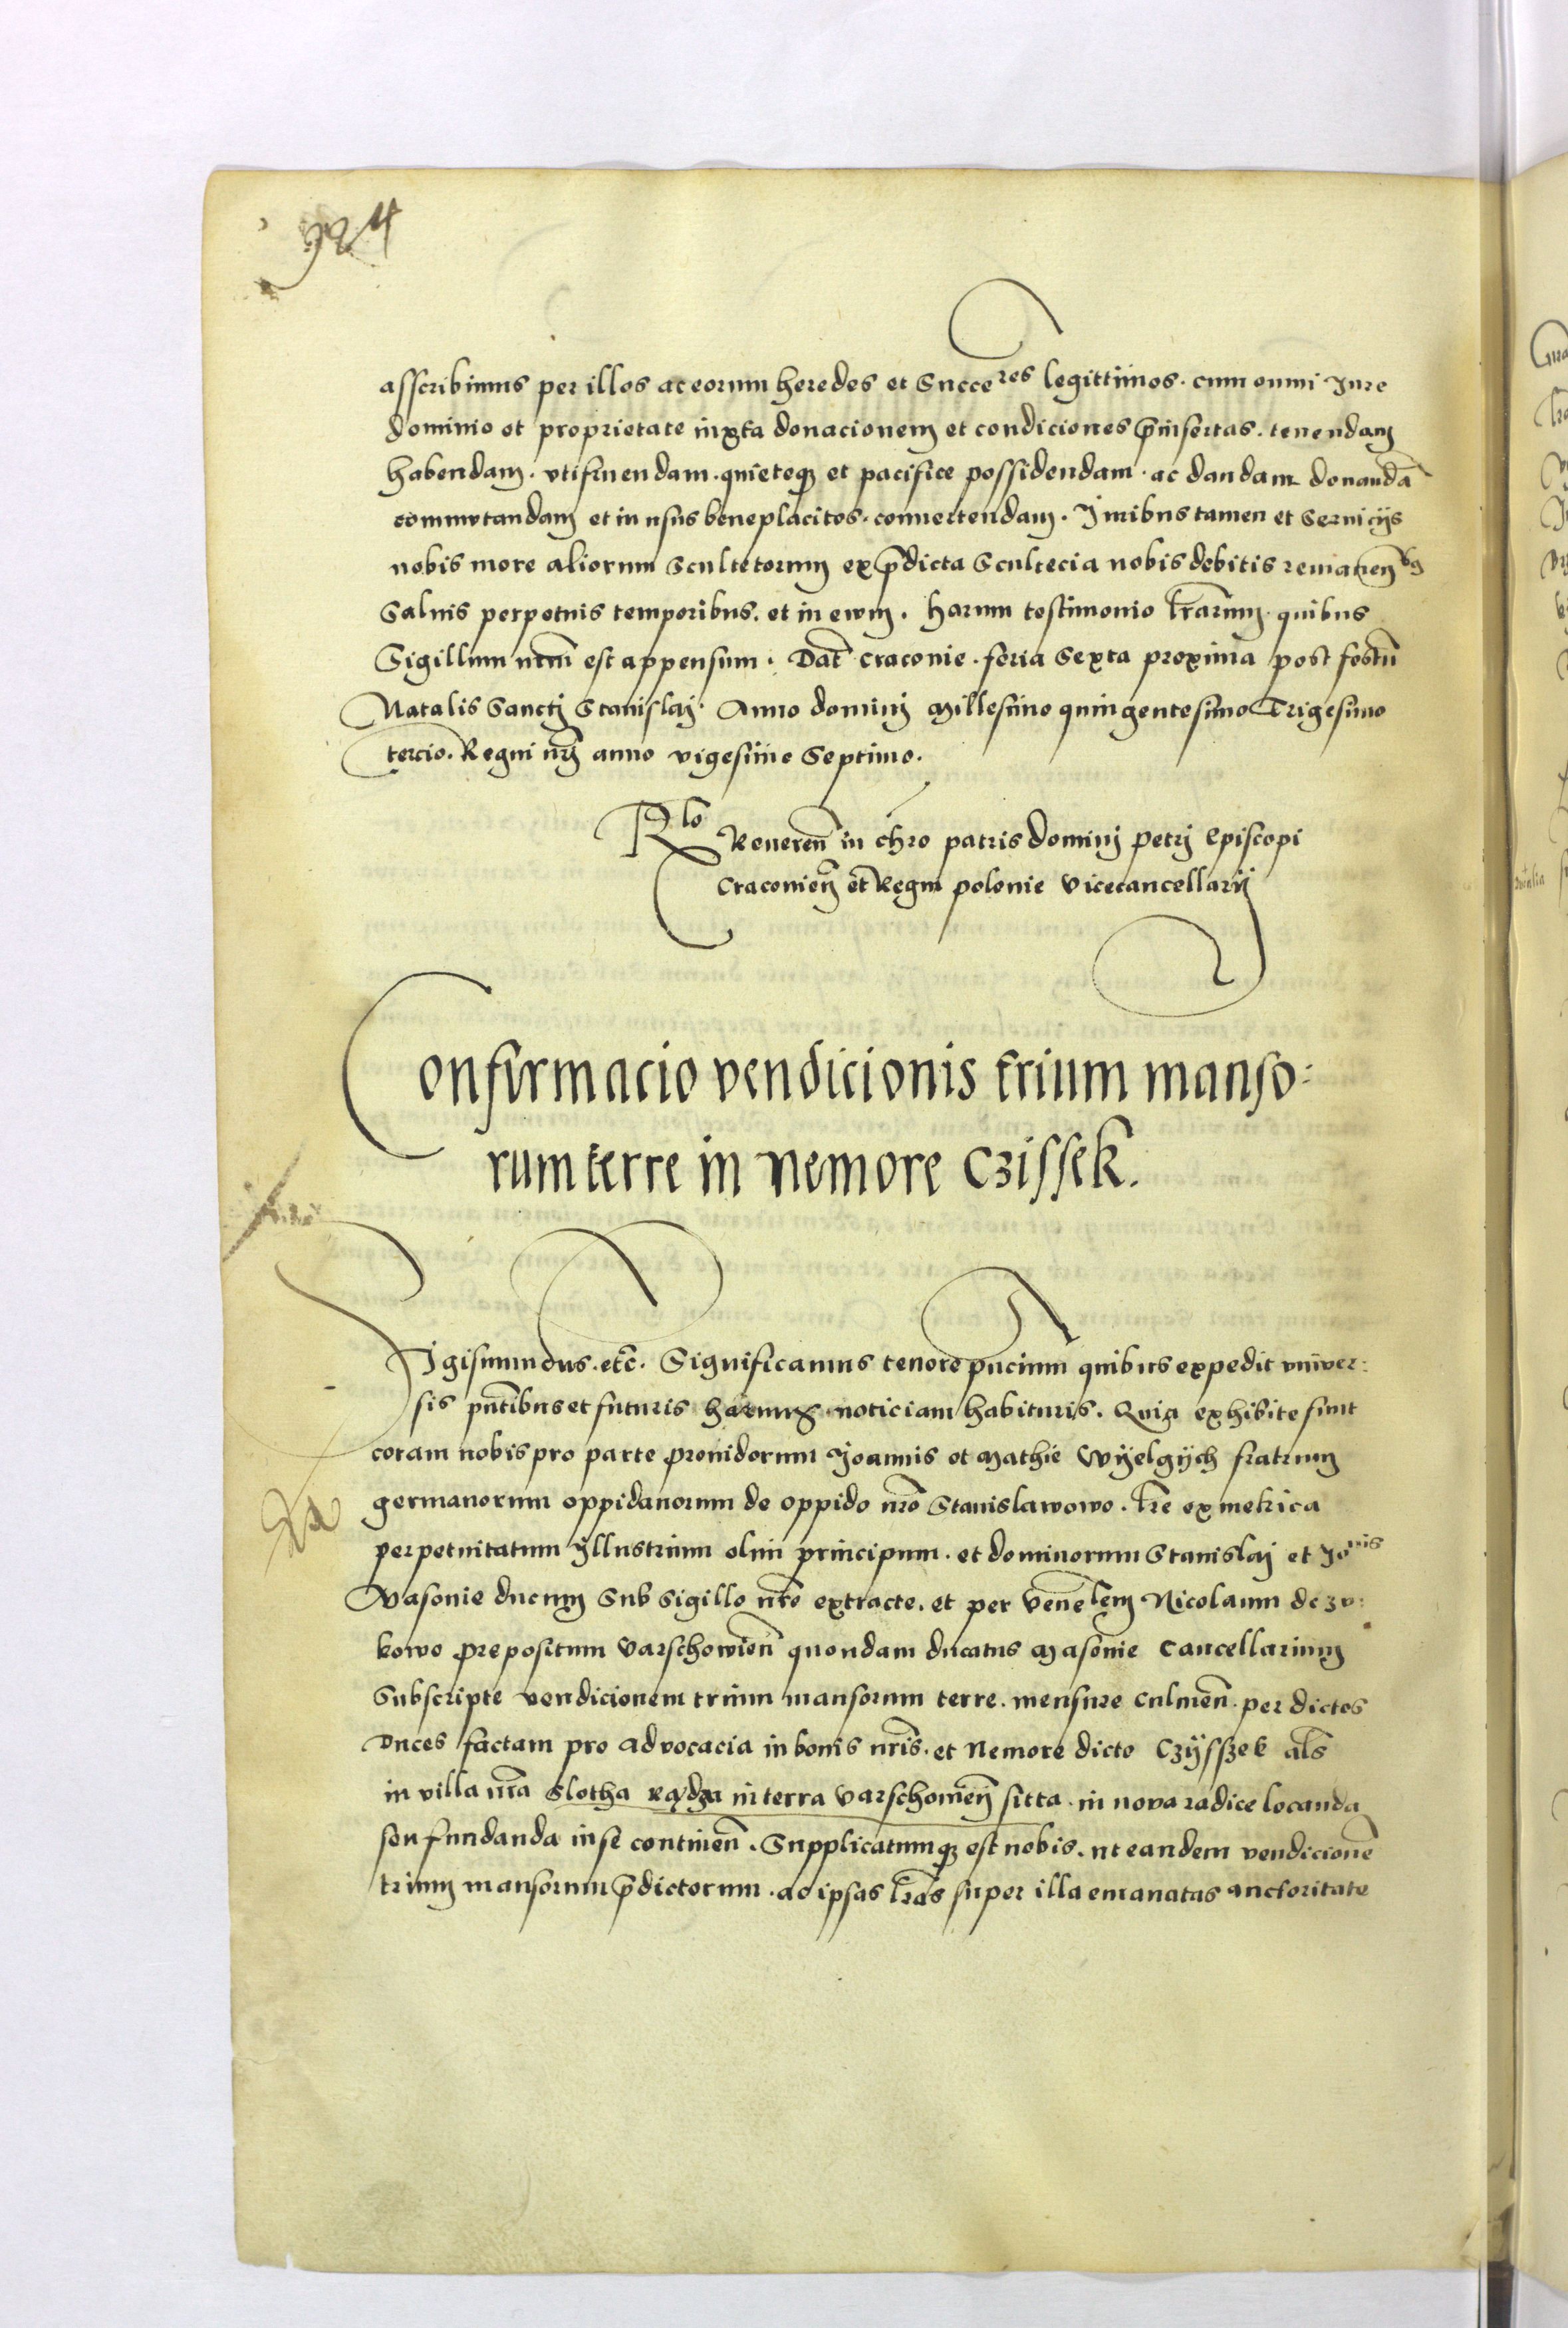 924
asscribimus per illos ac eorum heredes et Succeres legittimos. cum omni Jure
dominio et proprietate iuxta donacionem et condiciones p̄insertas. tenendam
habendam. utifruendam. quieteq; et pacifice possidendam. ac dandam donandā
commutandam et in usus beneplacitos. convertendam. Juribus tamen et Servicijs
nobis more aliorum Scultetorum ex p̄dicta Scultecia nobis debitis remanen̄bus
Salvis perpetuis temporibus. et in evum. harum testimonio l̄rarum. quibus
Sigillum nr̄m est appensum. Dat̄ Craconie. feria Sexta proxima post festū
Natalis Sancti Stanislaj. Anno dominj Millesimo quingentesimo Trigesimo
tercio. Regni nr̄j anno vigesimo Septimo.
Rlo Reveren̄ in chr̄o patris dominj Petrj Episcopi
Cracovien̄ et Regni polonie Vicecancellarij
Confirmacio vendicionis trium manso:
rum terre in nemore Czissek.
Sigismundus. etc̄. Significamus tenore p̄ncium quibus expedit univer:
sis pn̄tibus et futuris harum noticiam habituris. Quia exhibite sunt
coram nobis pro parte providorum Joannis et Mathie Wyelgych fratrum
germanorum oppidanorum de oppido nr̄o Stanislawowo. l̄re ex metrica
perpetuitatum Illustrium olim principum. et dominorum Stanislaj et Jo̅nis
Masovie ducum Sub Sigillo nr̄o extracte. et per Venelem̄ Nicolaum de zu:
kowo prepositum Varschovien̄ quondam ducatus Masovie Cancellarium
Subscripte vendicionem trium mansorum terre. mensure Culmen̄. per dictos
Duces factam pro advocacia in bonis nr̄is. et Nemore dicto Czysszek al̄s
in villa nr̄a Slotha rądza in terra Varschovien̄ sitta. in nova radice locanda
seu fundanda in se continen̄. Supplicatumq; est nobis. ut eandem vendicionē
trium mansorum p̄dictorum. ac ipsas l̄ras super illa emanatas auctoritate